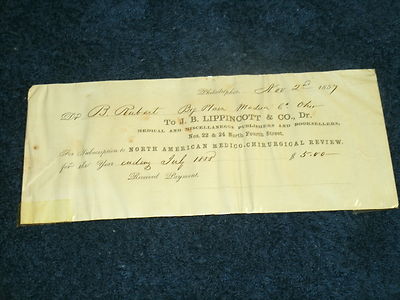 Philadelphia, Nov 2d 1857
Dr B. Rubert Big Plain Madison Co Ohio
To J. B. LIPPINCOTT & CO., Dr.
MEDICAL AND MISCELLANEOUS PUBLISHERS AND BOOKSELLERS,
Nos. 22 & 24 North Fourth Street.
For Subscription to NORTH AMERICAN MEDICO-CHIRURGICAL REVIEW,
for do Year ending July 1858 $5.00
Received Payment,